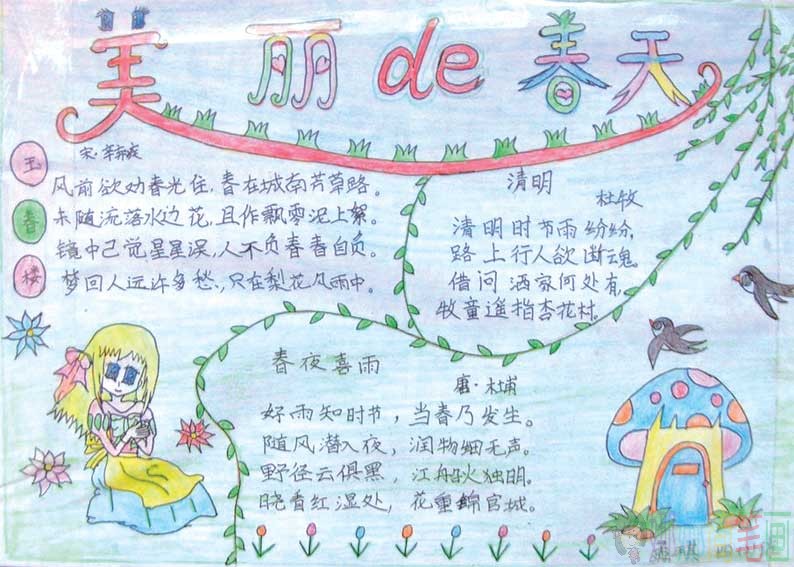 美丽de春天
玉
春
楼
宋·辛弃疾
风前欲劝春光住，春在城南芳草路。
未随流落水边花，且作飘零泥上絮。
镜中已觉星星误，人不负春春自负。
梦回人远许多愁，只在梨花风雨中。
清明
杜牧
清明时节雨纷纷，
路上行人欲断魂。
借问酒家何处有，
牧童遥指杏花村。
春夜喜雨
唐·杜甫
好雨知时节，当春乃发生。
随风潜入夜，润物细无声。
野径云俱黑，江船火独明。
晓看红湿处，花重锦官城。